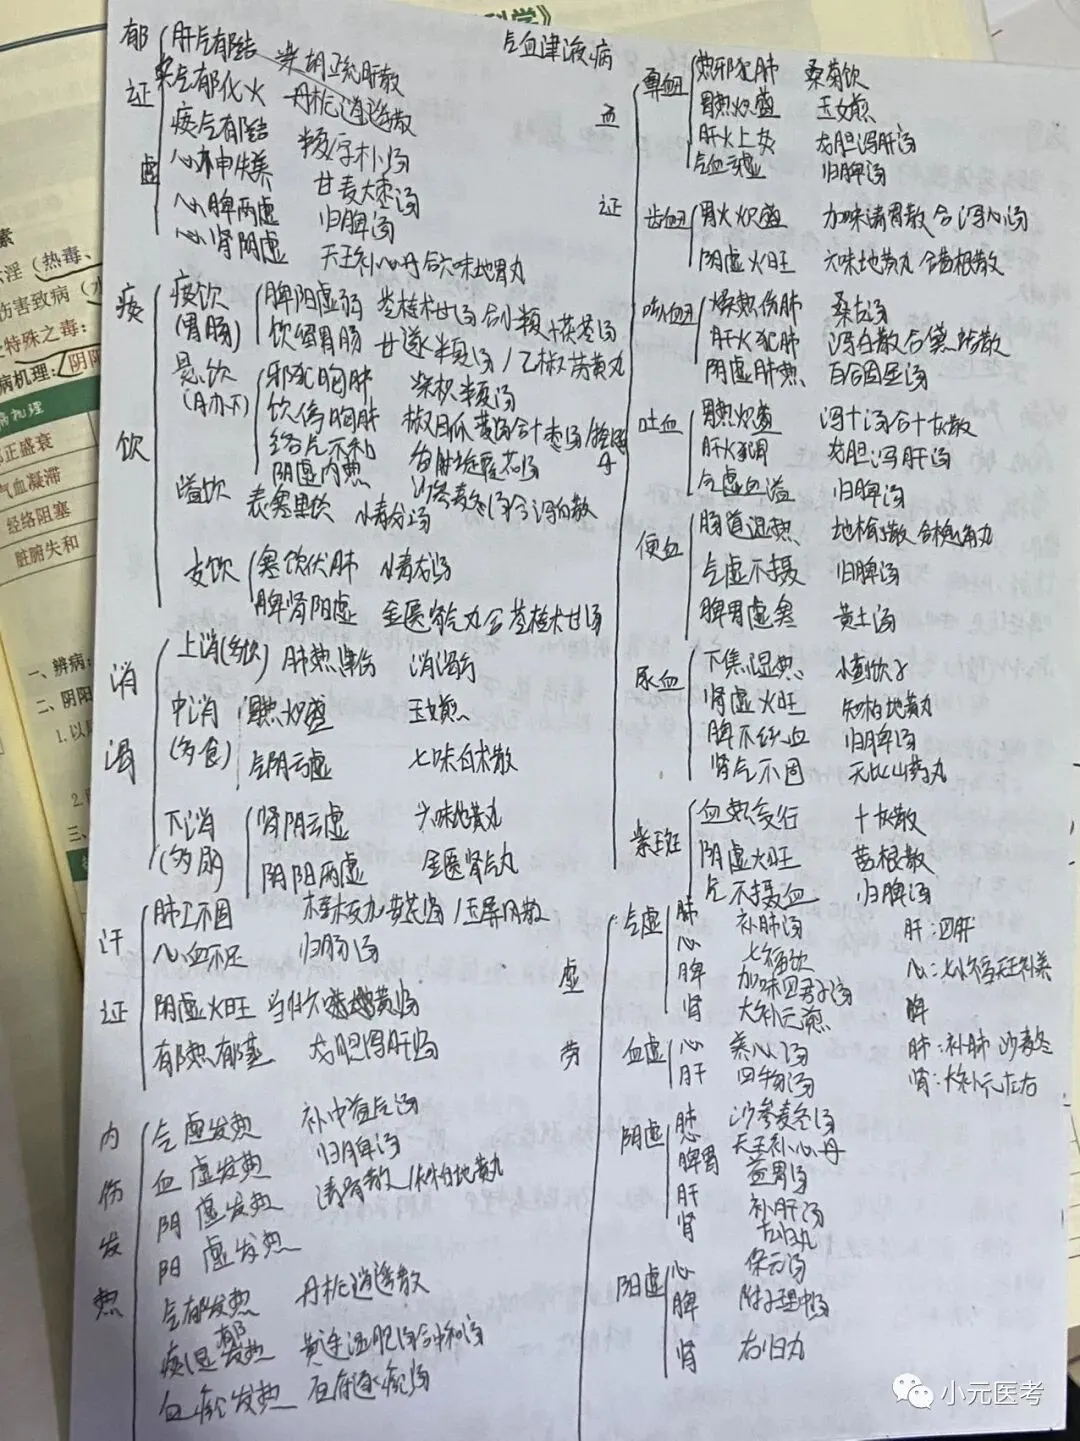 气血津液病
郁证
肝气郁结 柴胡疏肝散
气郁化火 丹栀逍遥散
痰气郁结 半夏厚朴汤
心神失养 甘麦大枣汤
虚
心脾两虚 归脾汤
心肾阴虚 天王补心丹合六味地黄丸
痰饮
痰饮(胃肠)
脾阳虚弱 苓桂术甘汤合小半夏+茯苓汤
饮留胃肠 甘遂半夏汤/己椒苈黄丸
悬饮(胁下)
邪犯胸肺 柴枳半夏汤
饮停胸胁 椒目瓜蒌汤合十枣汤/控涎丹
络气不和 香附旋覆花汤
阴虚内热 沙参麦冬汤合泻白散
溢饮 表寒里饮 小青龙汤
支饮
寒饮伏肺 小青龙汤
脾肾阳虚 金匮肾气丸合苓桂术甘汤
消渴
上消(多饮) 肺热津伤 消渴方
中消(多食)
胃热炽盛 玉女煎
气阴亏虚 七味白术散
下消(多尿)
肾阴亏虚 六味地黄丸
阴阳两虚 金匮肾气丸
汗证
肺卫不固 桂枝加黄芪汤/玉屏风散
心血不足 归脾汤
阴虚火旺 当归六黄汤
邪热郁蒸 龙胆泻肝汤
内伤发热
气虚发热 补中益气汤
血虚发热 归脾汤
阴虚发热 清骨散/知柏地黄丸
阳虚发热
气郁发热 丹栀逍遥散
痰湿郁发热 黄连温胆汤合中和汤
血瘀发热 血府逐瘀汤
血证
鼻血
热邪犯肺 桑菊饮
胃热炽盛 玉女煎
肝火上炎 龙胆泻肝汤
气血亏虚 归脾汤
齿血
胃火炽盛 加味清胃散合泻心汤
阴虚火旺 六味地黄丸合茜根散
咳血
燥热伤肺 桑杏汤
肝火犯肺 泻白散合黛蛤散
阴虚肺热 百合固金汤
吐血
胃热炽盛 泻心汤合十灰散
肝火犯胃 龙胆泻肝汤
气虚血溢 归脾汤
便血
肠道湿热 地榆散合槐角丸
气虚不摄 归脾汤
脾胃虚寒 黄土汤
尿血
下焦湿热 小蓟饮子
肾虚火旺 知柏地黄丸
脾不统血 归脾汤
肾气不固 无比山药丸
紫斑
血热妄行 十灰散
阴虚火旺 茜根散
气不摄血 归脾汤
虚劳
气虚
肺 补肺汤
心 七福饮
脾 加味四君子汤
肾 大补元煎
血虚
心 养心汤
肝 四物汤
阴虚
肺 沙参麦冬汤
心 天王补心丹
脾胃 益胃汤
肝 补肝汤
肾 左归丸
阳虚
心 保元汤
脾 附子理中汤
肾 右归丸
肝:四肝
脾
肺:补肺 沙麦冬
肾:大补元左右
小元医考
淫(热毒、
伤害致病(
特殊之毒:
病机理:阴阳
病机理
邪正盛衰
气血凝滞
经络阻塞
脏腑失和
一、辨病:
二、阴阳